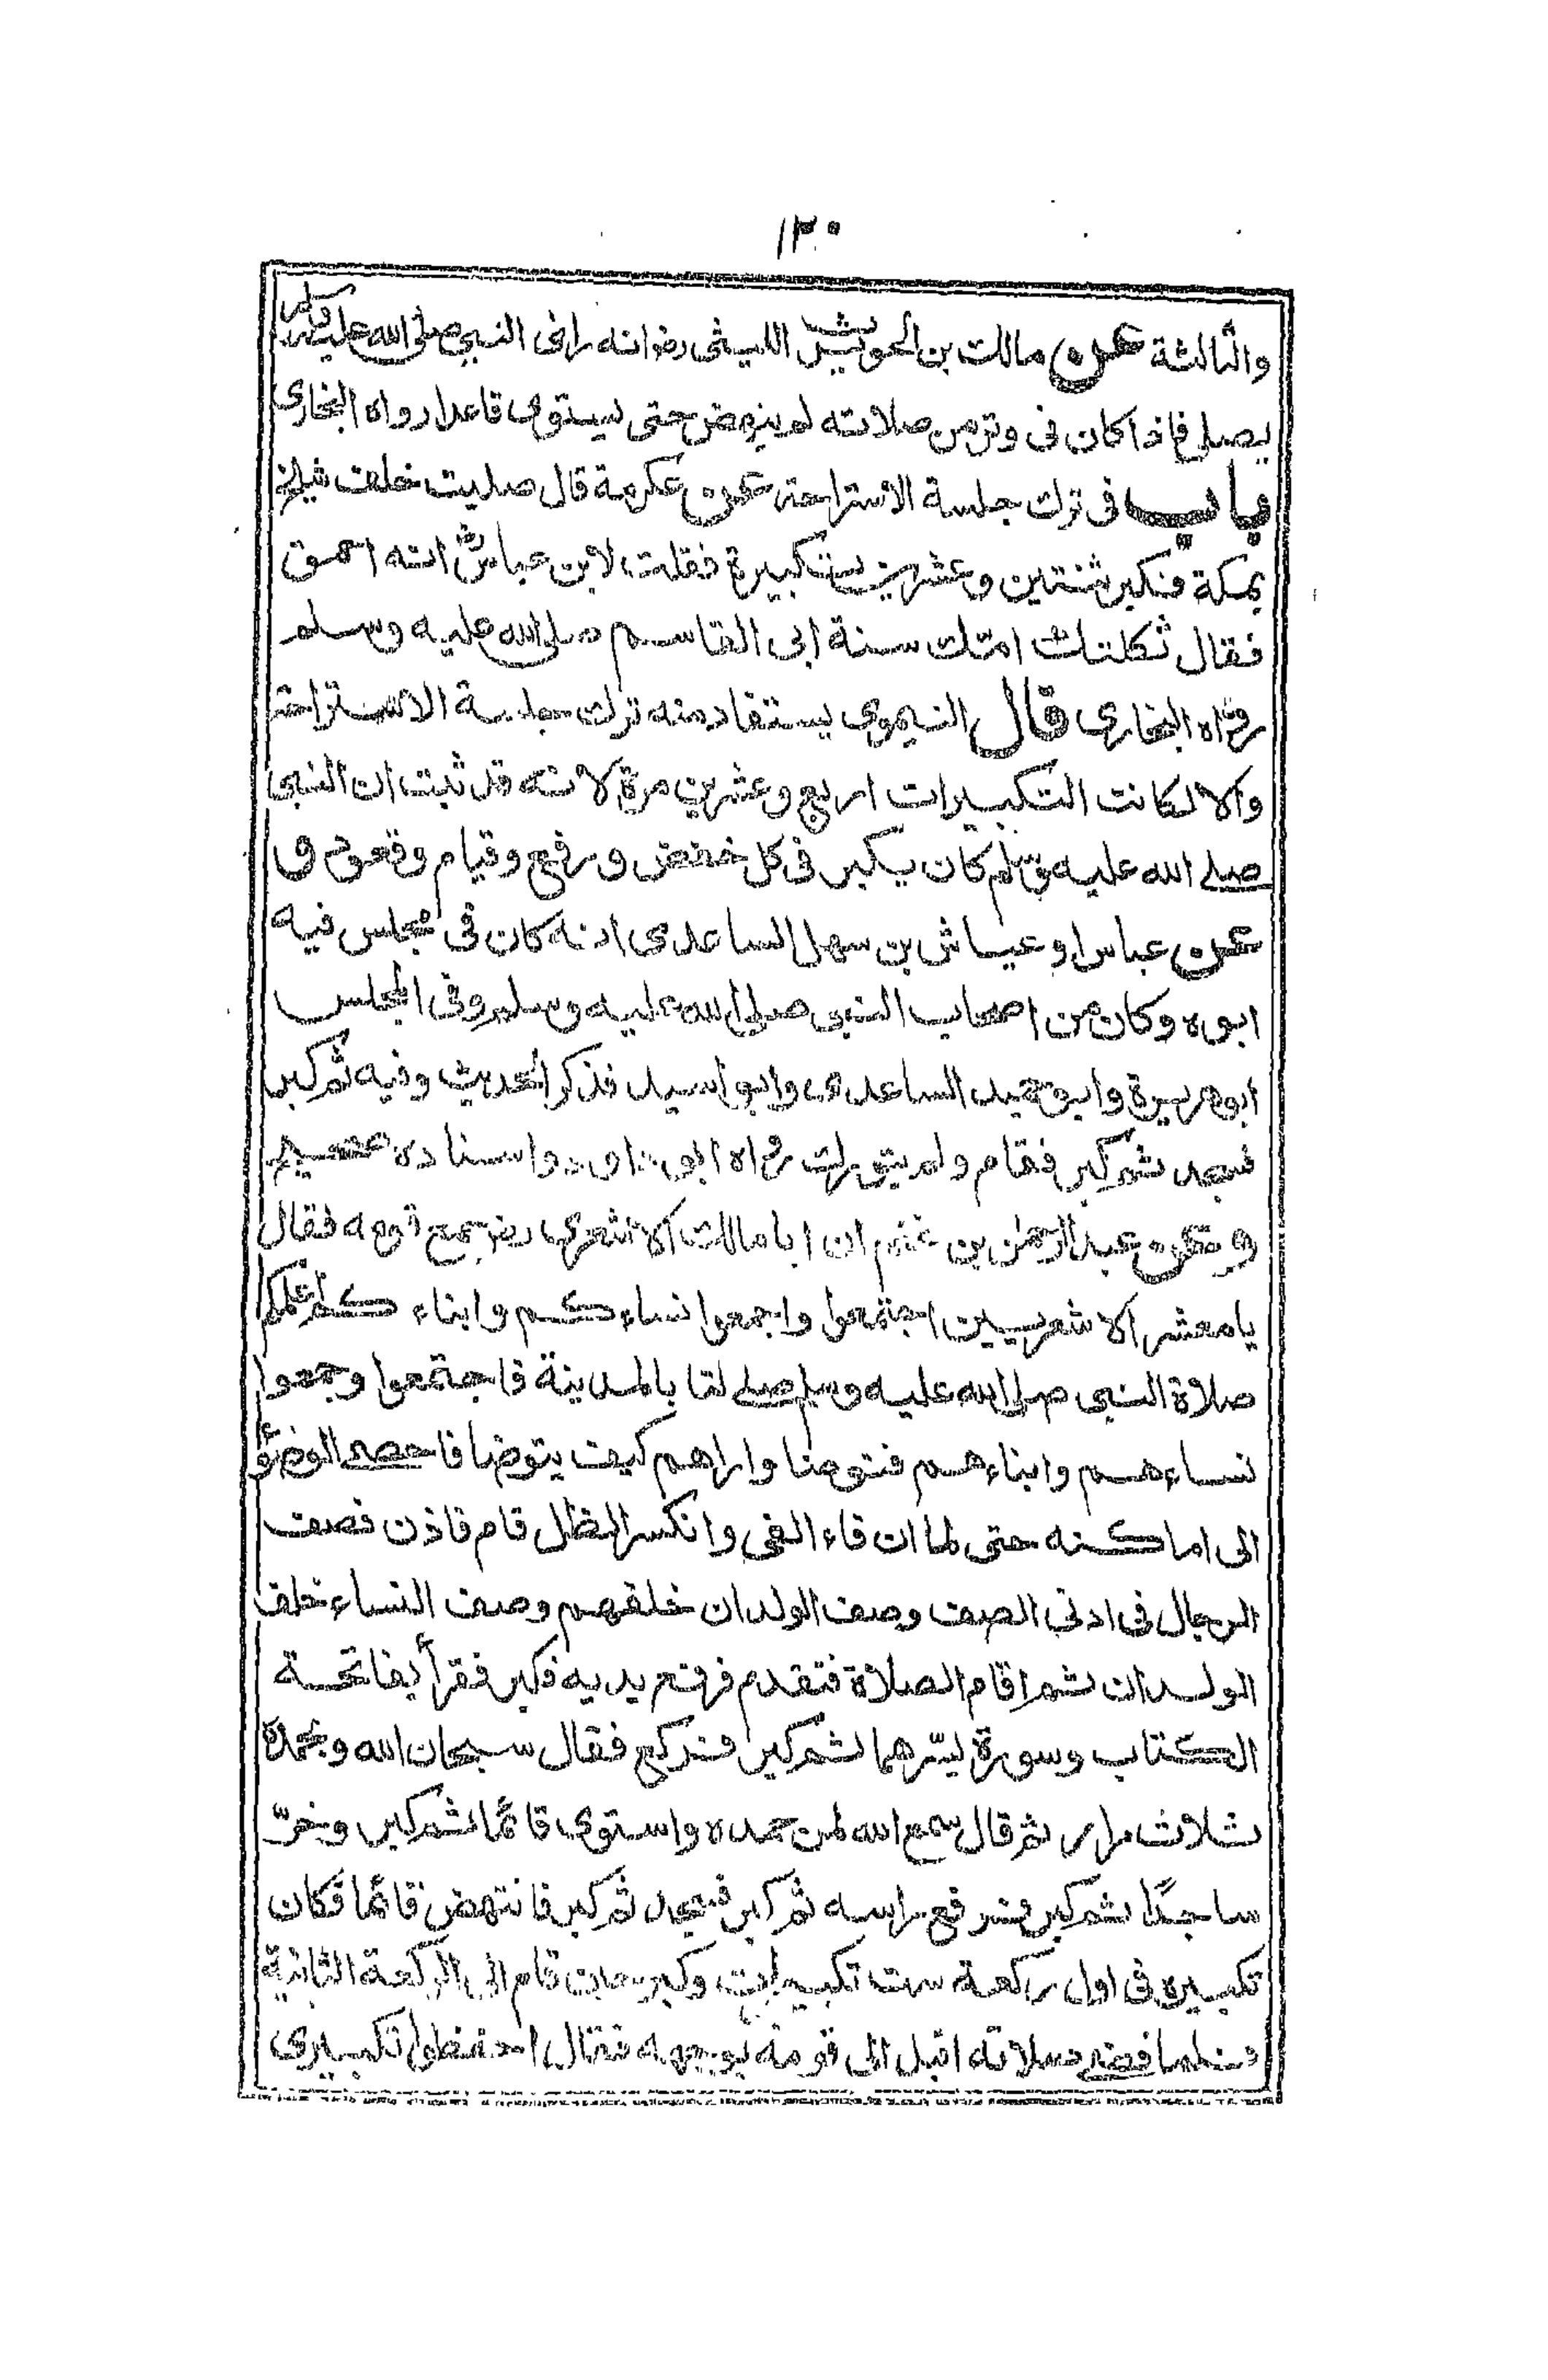 ١٣٠
والثالثة عن مالك بن الحويرث الليثي رض انه راى النبي صلى الله عليه وسلم
يصلي فاذا كان في وتر من صلاته لم ينهض حتى يستوى قاعدا رواه البخارى
باب في ترك جلسة الاستراحة عن عكرمة قال صليت خلف شيخ
بمكة فكبر ثنتين وعشرين تكبيرة فقلت لابن عباس رض انه احمق
فقال ثكلتك امك سنة ابى القاسم صلى الله عليه وسلم
رواه البخارى قال النيموى يستفاد منه ترك جلسة الاستراحة
والا لكانت التكبيرات اربع وعشرين مرة لانه قد ثبت ان النبى
صلى الله عليه وسلم كان يكبر في كل خفض ورفع وقيام وقعود و
عن عباس او عياش بن سهل الساعدى انه كان في مجلس فيه
ابوه وكان من اصحاب النبى صلى الله عليه وسلم وفى المجلس
ابو هريرة وابو حميد الساعدى وابو اسيد فذكر الحديث وفيه ثم كبر
فسجد ثم كبر فقام ولم يتورك رواه ابو داود واسناده صحيح
وعن عبد الرحمن بن غنم ان ابا مالك الاشعرى رض جمع قومه فقال
يا معشر الاشعريين اجتمعوا واجمعوا نساءكم وابناءكم اعلمكم
صلاة النبى صلى الله عليه وسلم صلى لنا بالمدينة فاجتمعوا وجمعوا
نساءهم وابناءهم فتوضا واراهم كيف يتوضا فاحصى الوضوء
الى اماكنه حتى لما ان فاء الفى وانكسر الظل قام فاذن فصف
الرجال فى ادنى الصف وصف الولدان خلفهم وصف النساء خلف
الولدان ثم اقام الصلاة فتقدم فرفع يديه فكبر فقرأ بفاتحة
الكتاب وسورة يسرهما ثم كبر فركع فقال سبحان الله وبحمده
ثلاث مرار ثم قال سمع الله لمن حمده واستوى قائما ثم كبر وخرّ
ساجدًا ثم كبر فرفع راسه ثم كبر فسجد ثم كبر فانتهض قائما فكان
تكبيره فى اول ركعة ست تكبيرات وكبر حين قام الى الركعة الثانية
فلما قضى صلاته اقبل الى قومه بوجهه فقال احفظوا تكبيرى